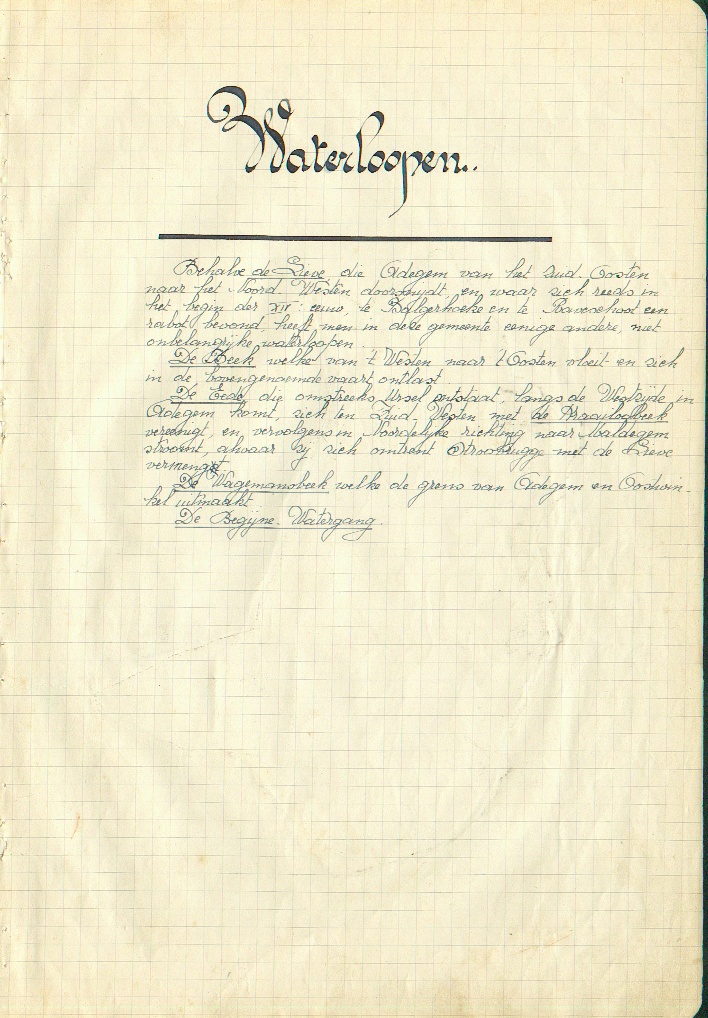 Waterloopen.
Behalve de Lieve, die Adegem van het Zud. Oosten
naar het Noord Westen doorsnijdt, en waar zich reeds in
het begin der XIVe eeuw, te Balgerhoeke en te Raverschoot een
rabot bevond, heeft men in deze gemeente eenige andere, niet
onbelangrijke waterloopen.
De Beek welke van 't Westen naar 't Oosten vloeit en zich
in de bovengenoemde vaart ontlast.
De Eede, die omstreeks Ursel ontstaat, langs de Westzijde in
Adegem komt, zich ten Zuid Westen met de
vereenigt, en vervolgens in Noordelijke richting naar Maldegem
stroomt, alwaar zij zich omtrent Stroobrugge met de Lieve
vermengt.
De Wagemansbeek welke de grens van Adegem en Oostwin-
kel uitmaakt.
De Begijne. Watergang.